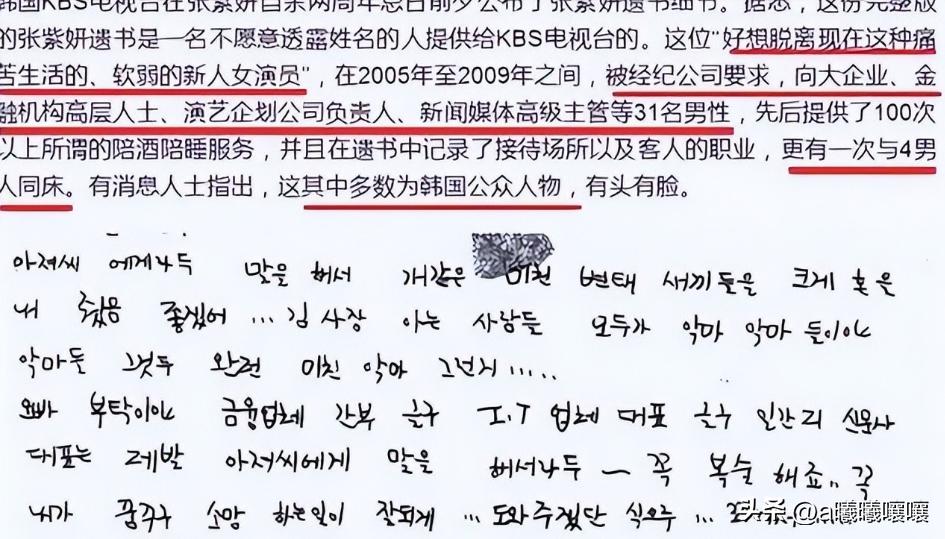 韩国KBS电视台在张紫妍自杀两周年忌日前夕公布了张紫妍遗书细节。据悉，这份完整版
的张紫妍遗书是一名不愿意透露姓名的人提供给KBS电视台的。这位"好想脱离现在这种痛
苦生活的、软弱的新人女演员"，在2005年至2009年之间，被经纪公司要求，向大企业、金
融机构高层人士、演艺企划公司负责人、新闻媒体高级主管等31名男性，先后提供了100次
以上所谓的陪酒陪睡服务，并且在遗书中记录了接待场所以及客人的职业，更有一次与4男
人同床。有消息人士指出，这其中多数为韩国公众人物，有头有脸。
아저씨 에게나두 말을 해서 개같은 미친 변태 새끼들을 크게 혼을
내 줬음 좋겠어 ... 김 사장 아는 사람들 모두가 악마 악마 들이야
악마들 그것두 완전 미친 악마 그런지 .....
오빠 부탁이야 금융업체 간부 글구 I.T 업체 대표 글구 일간지 신문사
대표는 제발 아저씨에게 말을 해서나두 꼭 복수 해죠.. 꼭
내가 꿈꾸구 소망 하는일이 잘되게 ... 도와주겠단 식으루 ...
头条 @a曦曦嚷嚷